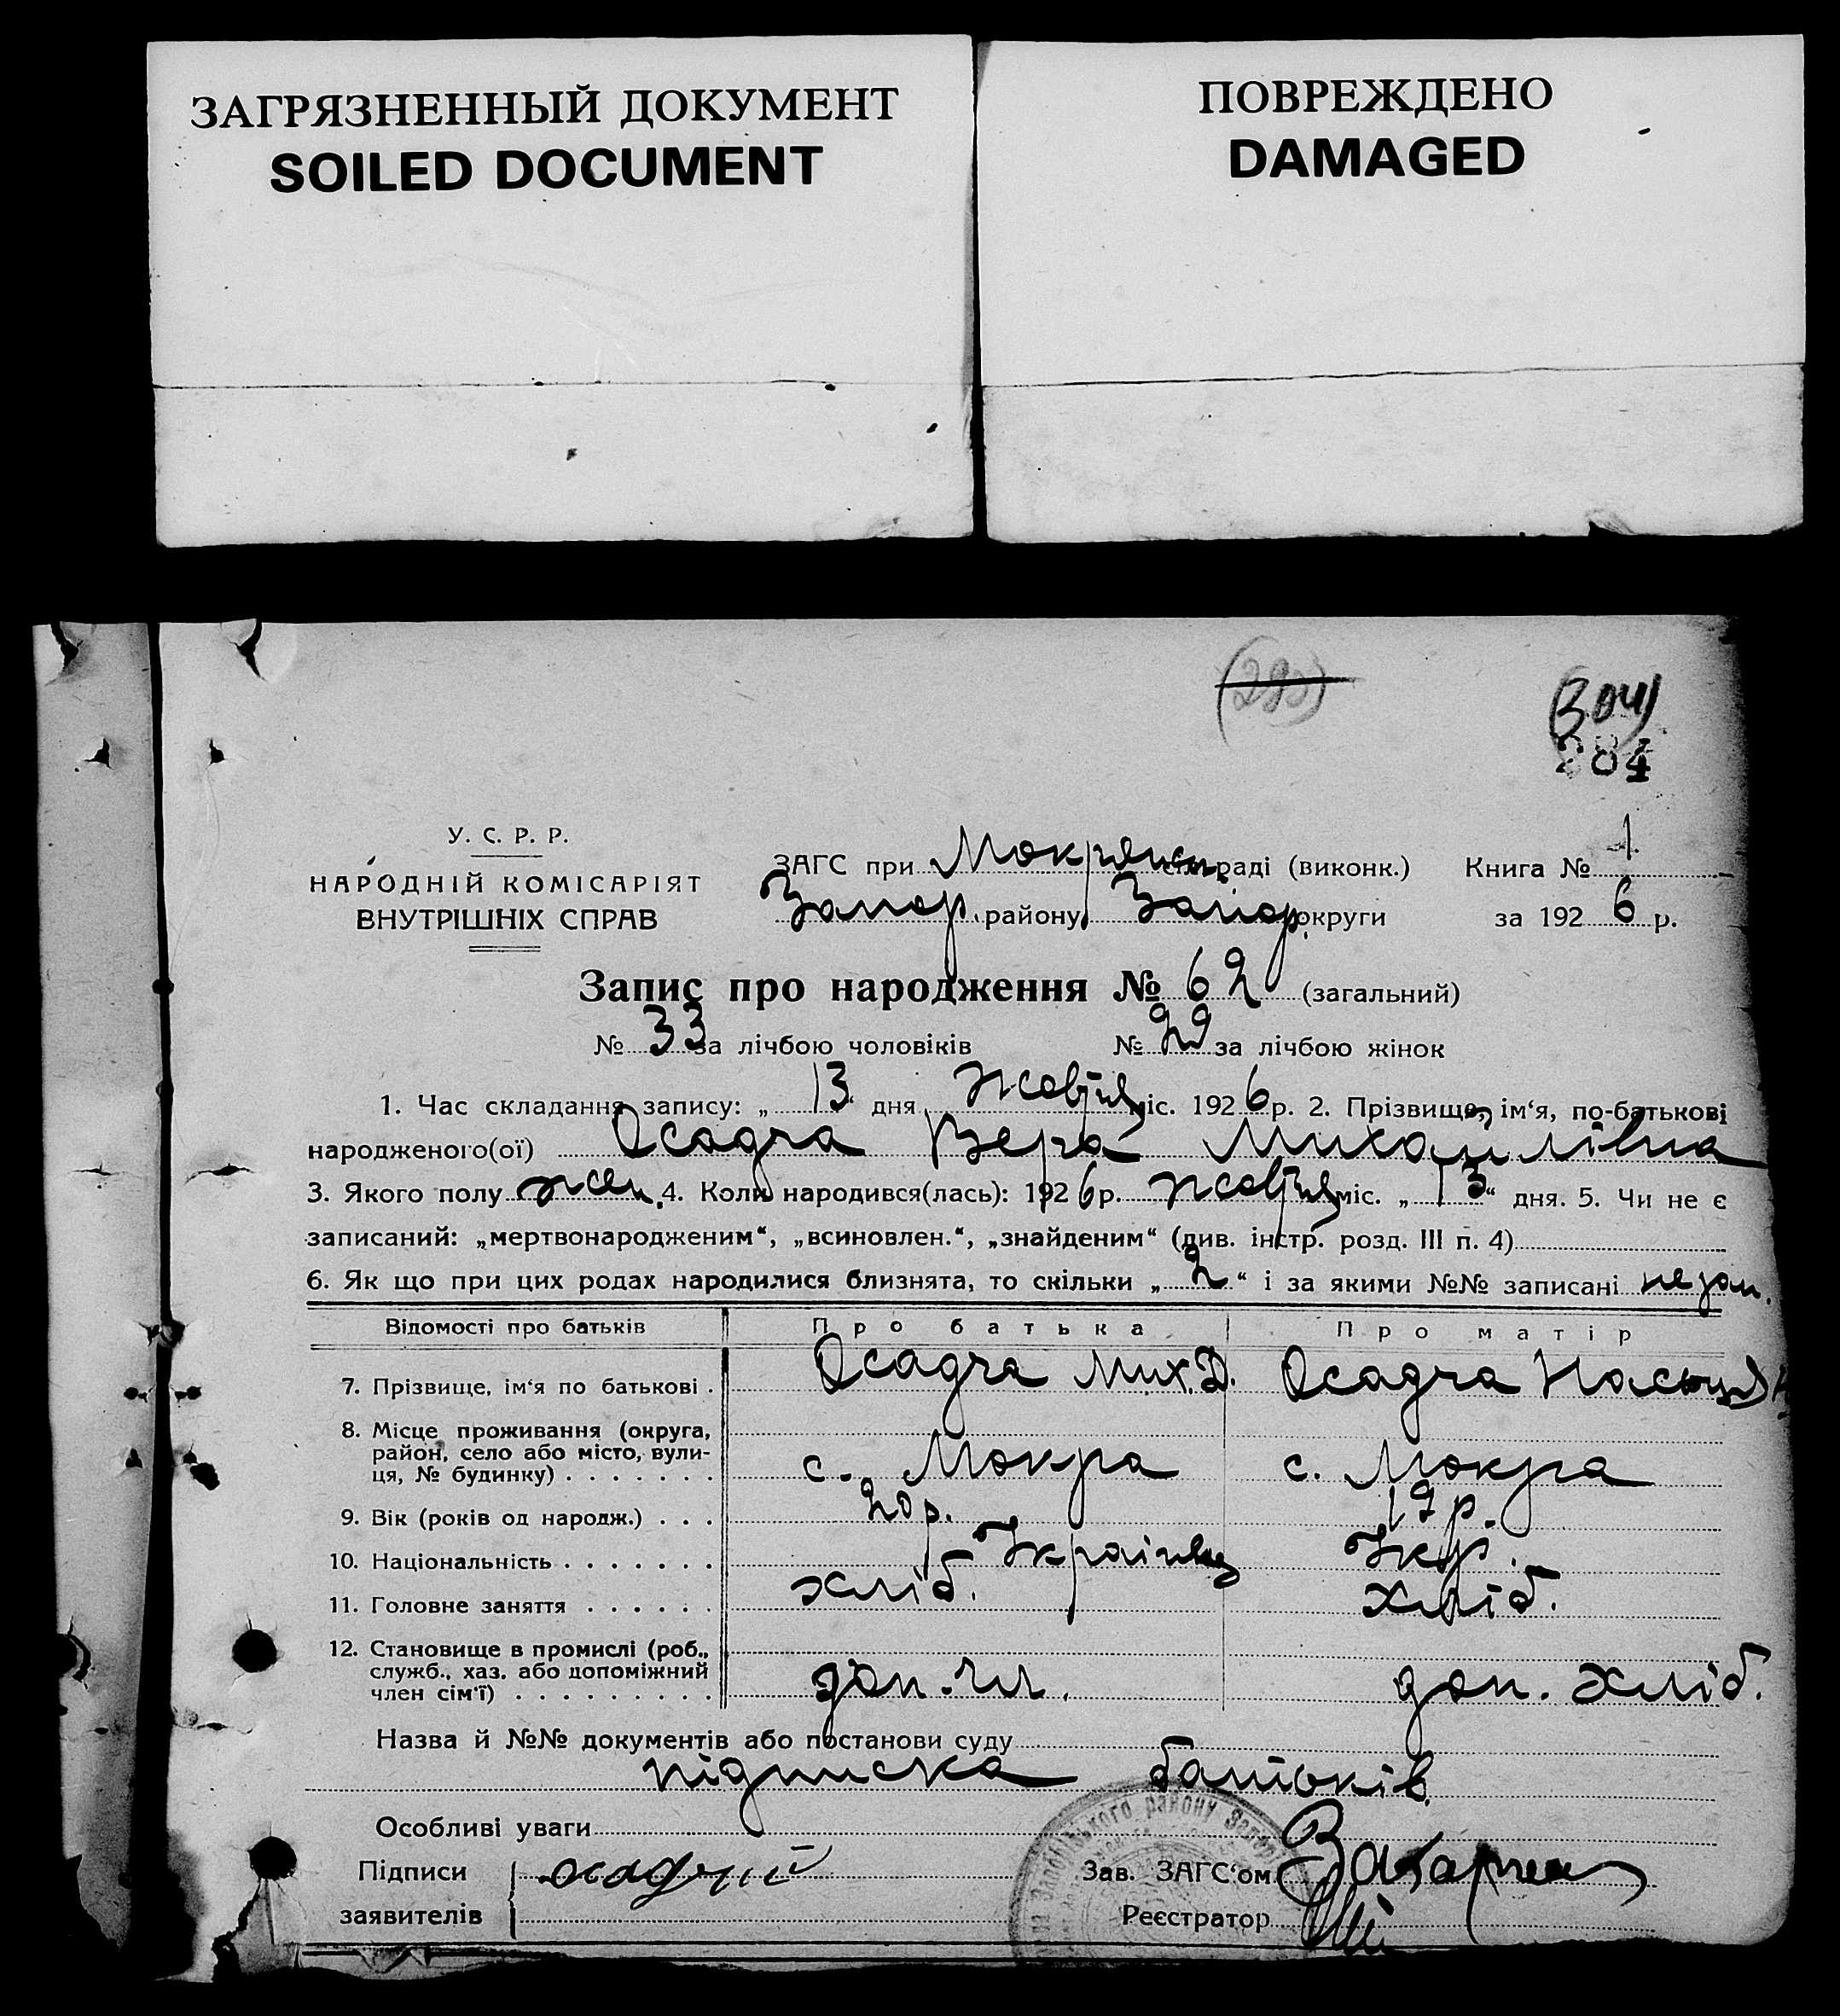 ЗАГРЯЗНЕННЫЙ ДОКУМЕНТ
SOILED DOCUMENT
ПОВРЕЖДЕНО
DAMAGED
(304)
284
У. С. Р. Р.
НАРОДНІЙ КОМІСАРІЯТ
ВНУТРІШНІХ СПРАВ
ЗАГС при Мокрянськ. раді (виконк.) Книга № 1
Запор. району Запор. округи за 1926 р.
Запис про народження № 62 (загальний)
№ 33 за лічбою чоловіків № 29 за лічбою жінок
1. Час складання запису: „ 13 “ дня Жовтня міс. 1926 р. 2. Прізвище, ім‘я, по-батькові
народженого(ої) Осадча Вера Михайлівна
3. Якого полу жен. 4. Коли народився(лась): 1926 р. жовтня міс. „ 13 “ дня. 5. Чи не є
записаний: „мертвонародженим“, „всиновлен.“, „знайденим“ (див. інстр. розд. III п. 4)
6. Як що при цих родах народилися близнята, то скільки „ 2 “ і за якими №№ записані не зап.
Відомості про батьків Про батька Про матір
7. Прізвище, ім‘я по батькові . Осадча Мих. Д. Осадча Насьця
8. Місце проживання (округа,
район, село або місто, вули-
ця, № будинку) . . . . . . . с. Мокра с. Мокра
9. Вік (років од народж.) . . . 20 р. 19 р.
10. Національність . . . . . . . Українець Укр.
11. Головне заняття . . . . . . хліб. хліб.
12. Становище в промислі (роб.,
служб., хаз. або допоміжний
член сім‘ї) . . . . . . . . . доп. чл. доп. хліб.
Назва й №№ документів або постанови суду
підписка батьків
Особливі уваги
Підписи осадчий Зав. ЗАГС‘ом
заявителів Реєстратор